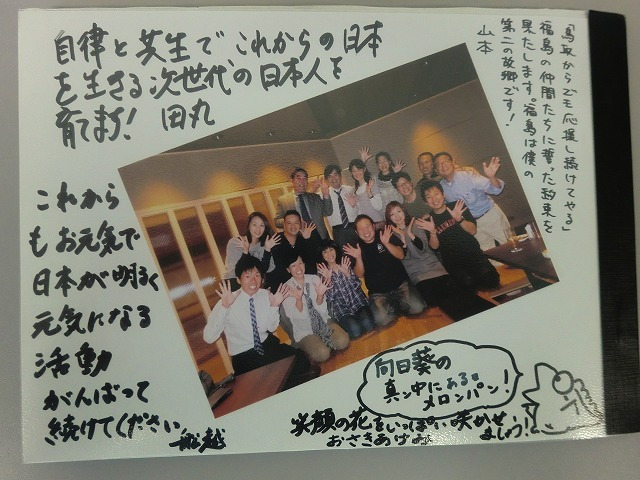 自律と共生で、これからの日本
を生きる次世代の日本人を
育てます! 田丸
「鳥取からでも応援し続けてやる」
福島の仲間たちに誓った約束を
果たします。福島は僕の
第二の故郷です!
山本
これから
もお元気で
日本が明るく
元気になる
活動
がんばって
続けてください
船越
向日葵の
真ン中にある
メロンパン!
笑顔の花をいっぱい咲かせ
ましょう!
おさきあけみ